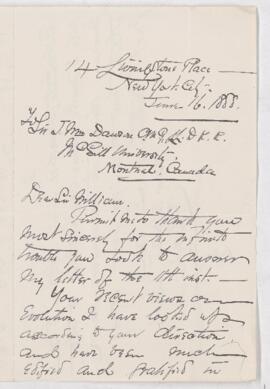 14 Livingston Place
New York City
June 16. 1888.
To Sir J. Wm Dawson
McGill University
Montreal, Canada
Dear Sir William.
Permit me to thank you
most sincerely for the infinite
trouble you took to answer
my letter of the 11th inst.
Your recent views on
Evolution I have looked up
according to your direction,
and have been much
edified and gratified in